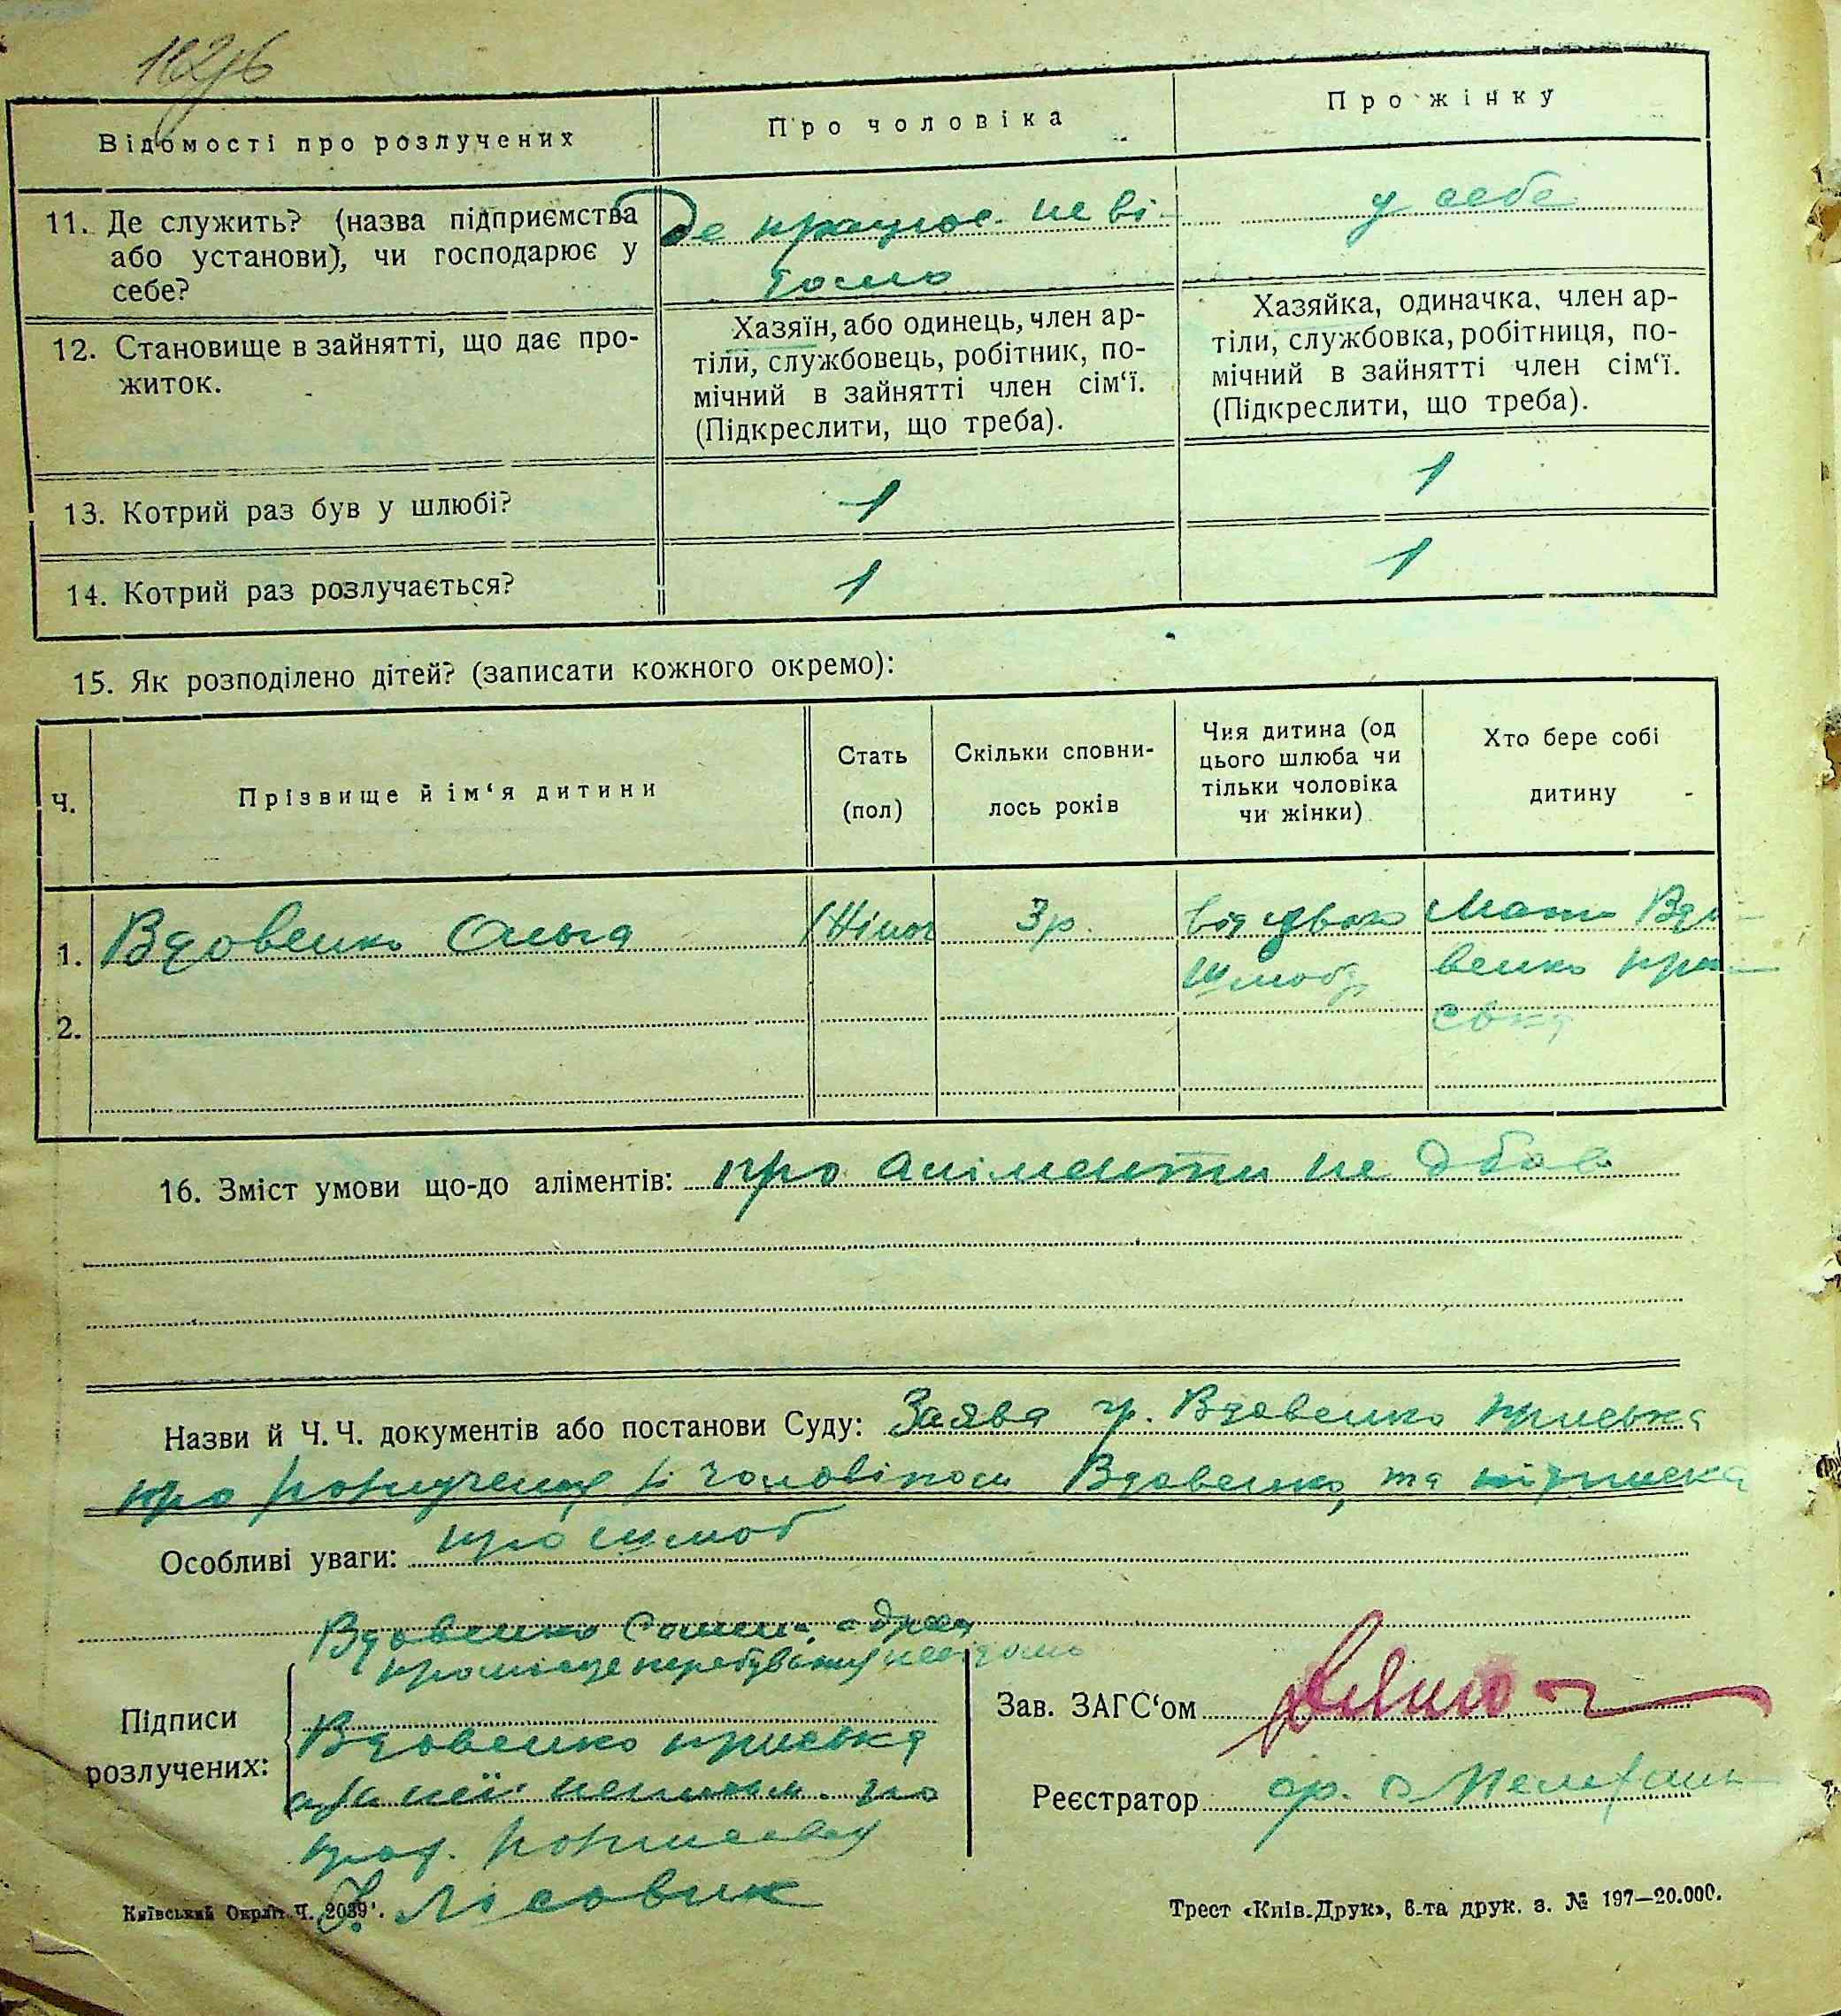 Відомості про розлучених
Про чоловіка
Про жінку
11. Де служить? (назва підприємства
або установи), чи господарює у
себе?
де працює не ві-
домо
у себе
12. Становище в зайнятті, що дає про-
житок.
Хазяїн, або одинець, член ар-
тілі, службовець, робітник, по-
мічний в зайнятті член сім‘ї.
(Підкреслити, що треба).
Хазяйка, одиначка, член ар-
тіли, службовка, робітниця, по-
мічний в зайнятті член сім‘ї.
(Підкреслити, що треба).
13. Котрий раз був у шлюбі?
1
1
14. Котрий раз розлучається?
1
1
15. Як розподілено дітей? (записати кожного окремо):
Ч.
Прізвище й ім‘я дитини
Стать
(пол)
Скільки сповни-
лось років
Чия дитина (од
цього шлюба чи
тільки чоловіка
чи жінки)
Хто бере собі
дитину
1.
Вдовенко Ольга
Жіноч
3 р.
від
шлюбу
Мати Вдо-
венко При-
ська
2.
16. Зміст умови що-до аліментів: про аліменти не дбав
Назви й Ч. Ч. документів або постанови Суду: Заява гр. Вдовенко Приська
про розлучення зі чоловіком Вдовенко, та
про шлюб
Особливі уваги:
Вдовенко адреса
про місце перебування невідомо
Підписи
розлучених:
Вдовенко Приська
а за неї непись. по
прох. розписався
Лісовик
Зав. ЗАГС‘ом
Реєстратор
Київський Окрліт Ч. 2039'.
Трест «Київ-Друк», 6-та друк. з. № 197—20.000.